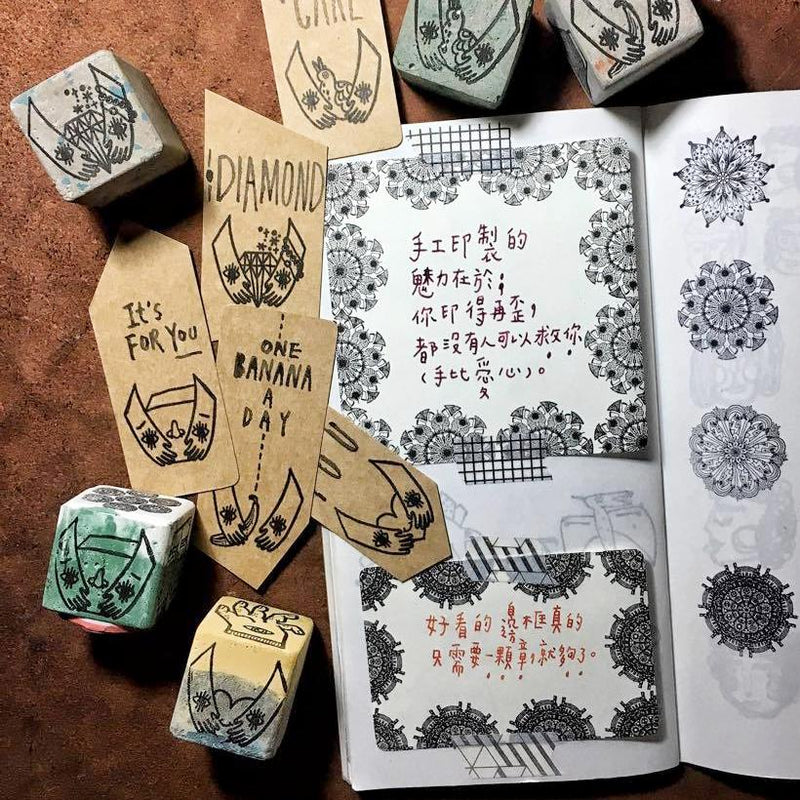 DIAMOND
It's
FOR YOU
ONE
BANANA
A
DAY
手工印製的
魅力在於；
你印得再歪，
都沒有人可以救你
（手比愛心）。
好看的邊框真的
只需要一顆章，就夠了。